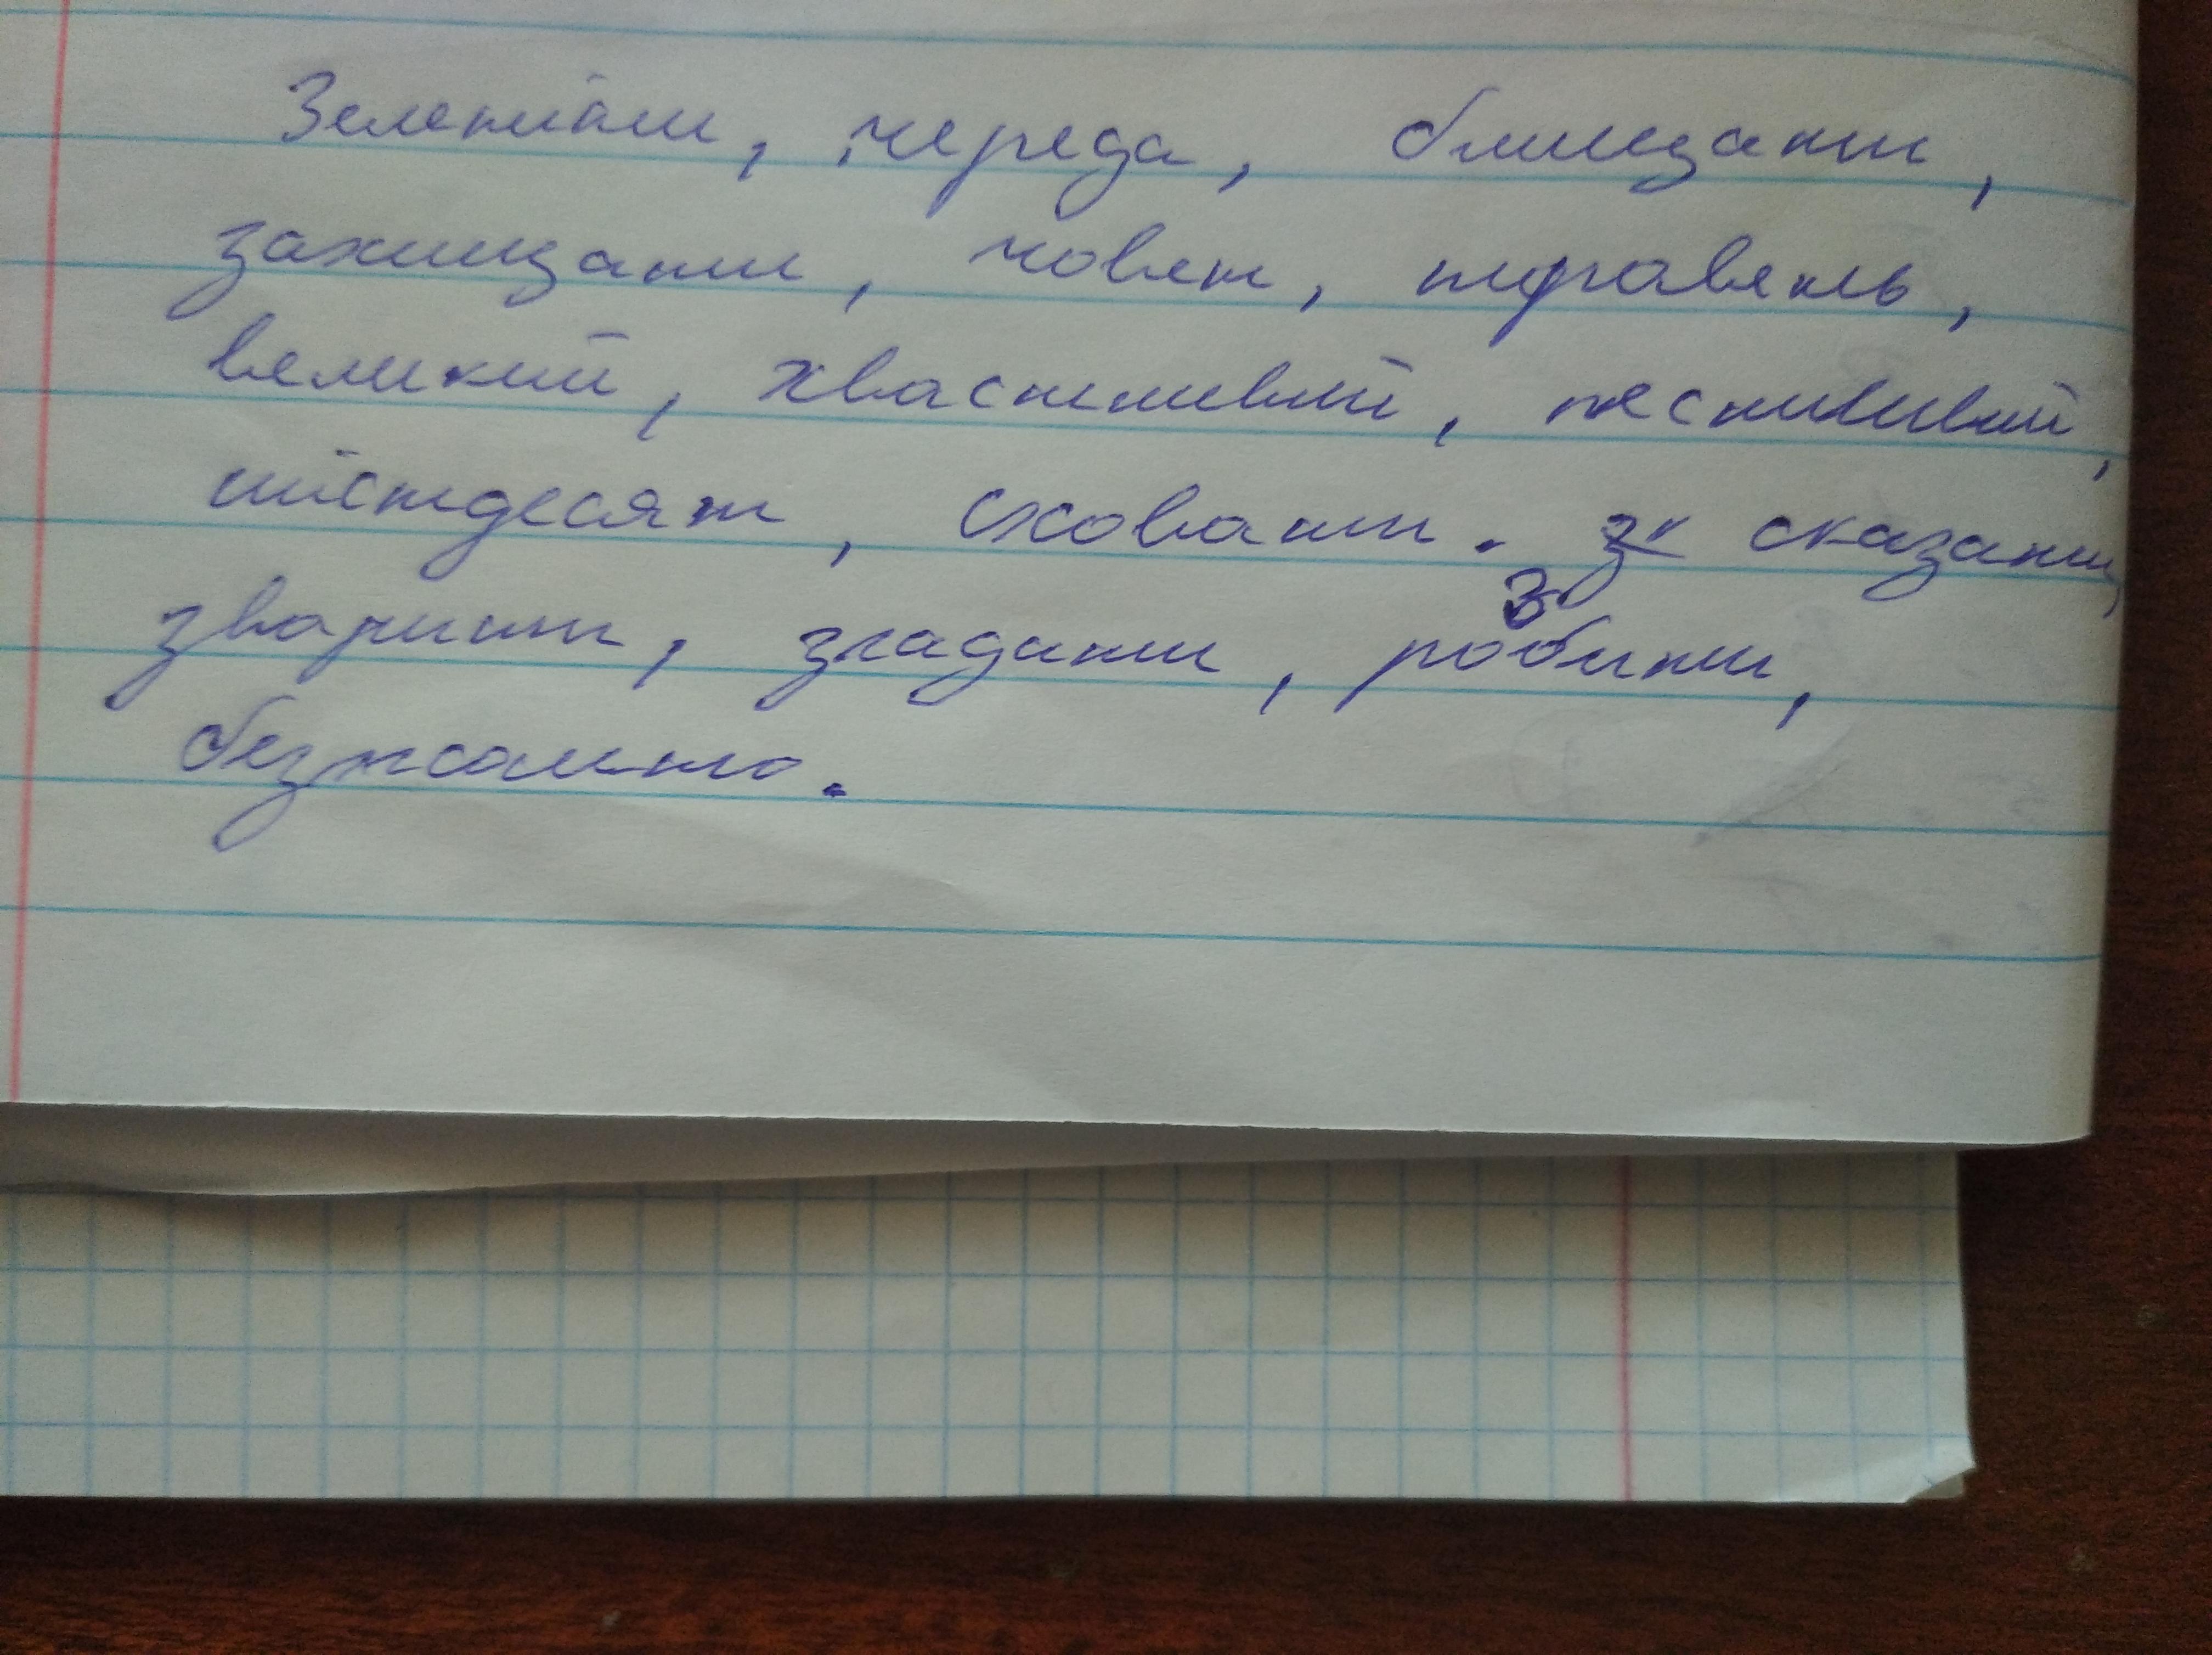 Зеленіти, череда, блищати,
захищати, човен, журавель,
великий, хвастливий, жесливий,
шістдесят, сховати. зк сказати,
зварити, згадати, розбити,
безжально.